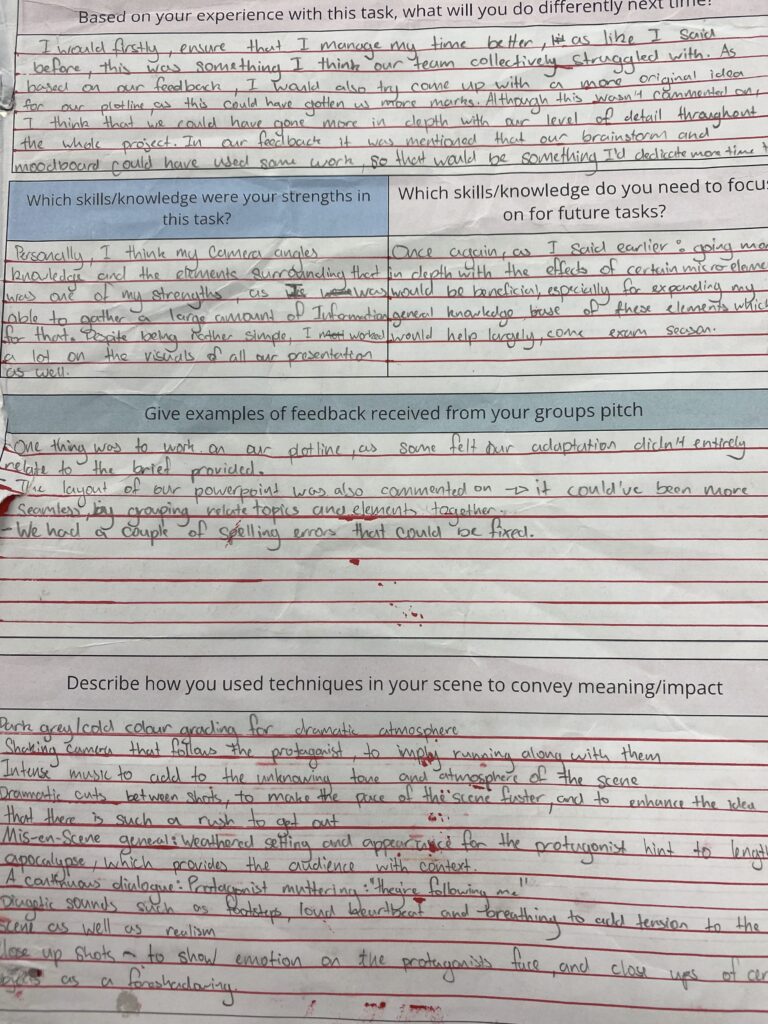 Based on your experience with this task, what will you do differently next time?
I would firstly, ensure that I manage my time better, as like I said
before, this was something I think our team collectively struggled with. As
based on our feedback, I would also try come up with a more original idea
for our plotline, as this could have gotten us more marks. Although this wasn't commented on,
I think that we could have gone more in depth with our level of detail throughout
the whole project. In our feedback it was mentioned that our brainstorm and
moodboard could have used some work, so that would be something I'd dedicate more time
Which skills/knowledge were your strengths in
this task?
Personally, I think my Camera angles
knowledge and the elements surrounding that
was one of my strengths, as I was
able to gather a large amount of Information
for that. Despite being rather simple, I worked
a lot on the visuals of all our presentation
as well.
Which skills/knowledge do you need to focus
on for future tasks?
Once again, as I said earlier: going more
in depth with the effects of certain micro
would be beneficial, especially for expanding my
general knowledge base of these elements which
would help largely, come exam season.
Give examples of feedback received from your groups pitch
- One thing was to work on our plotline, as some felt our adaptation didn't entirely
relate to the brief provided.
- The layout of our powerpoint was also commented on → it could've been more
seamless, by grouping relate topics and elements together.
- We had a couple of spelling errors that could be fixed.
Describe how you used techniques in your scene to convey meaning/impact
Dark grey/cold colour grading for dramatic atmosphere
Shaking camera that follows the protagonist, to imply running along with them
Intense music to add to the unknowing tone and atmosphere of the scene
Dramatic cuts between shots, to make the pace of the scene faster, and to enhance the idea
that there is such a rush to get out
Mis-en-Scene general: Weathered setting and appearance for the protagonist hint to
apocalypse, which provides the audience with context.
A continuous dialogue: Protagonist muttering: "theyre following me"
Diagetic sounds such as footsteps, loud heartbeat and breathing to add tension to the
scene as well as realism
Close up shots - to show emotion on the protagonists face, and close ups of
as a foreshadowing.